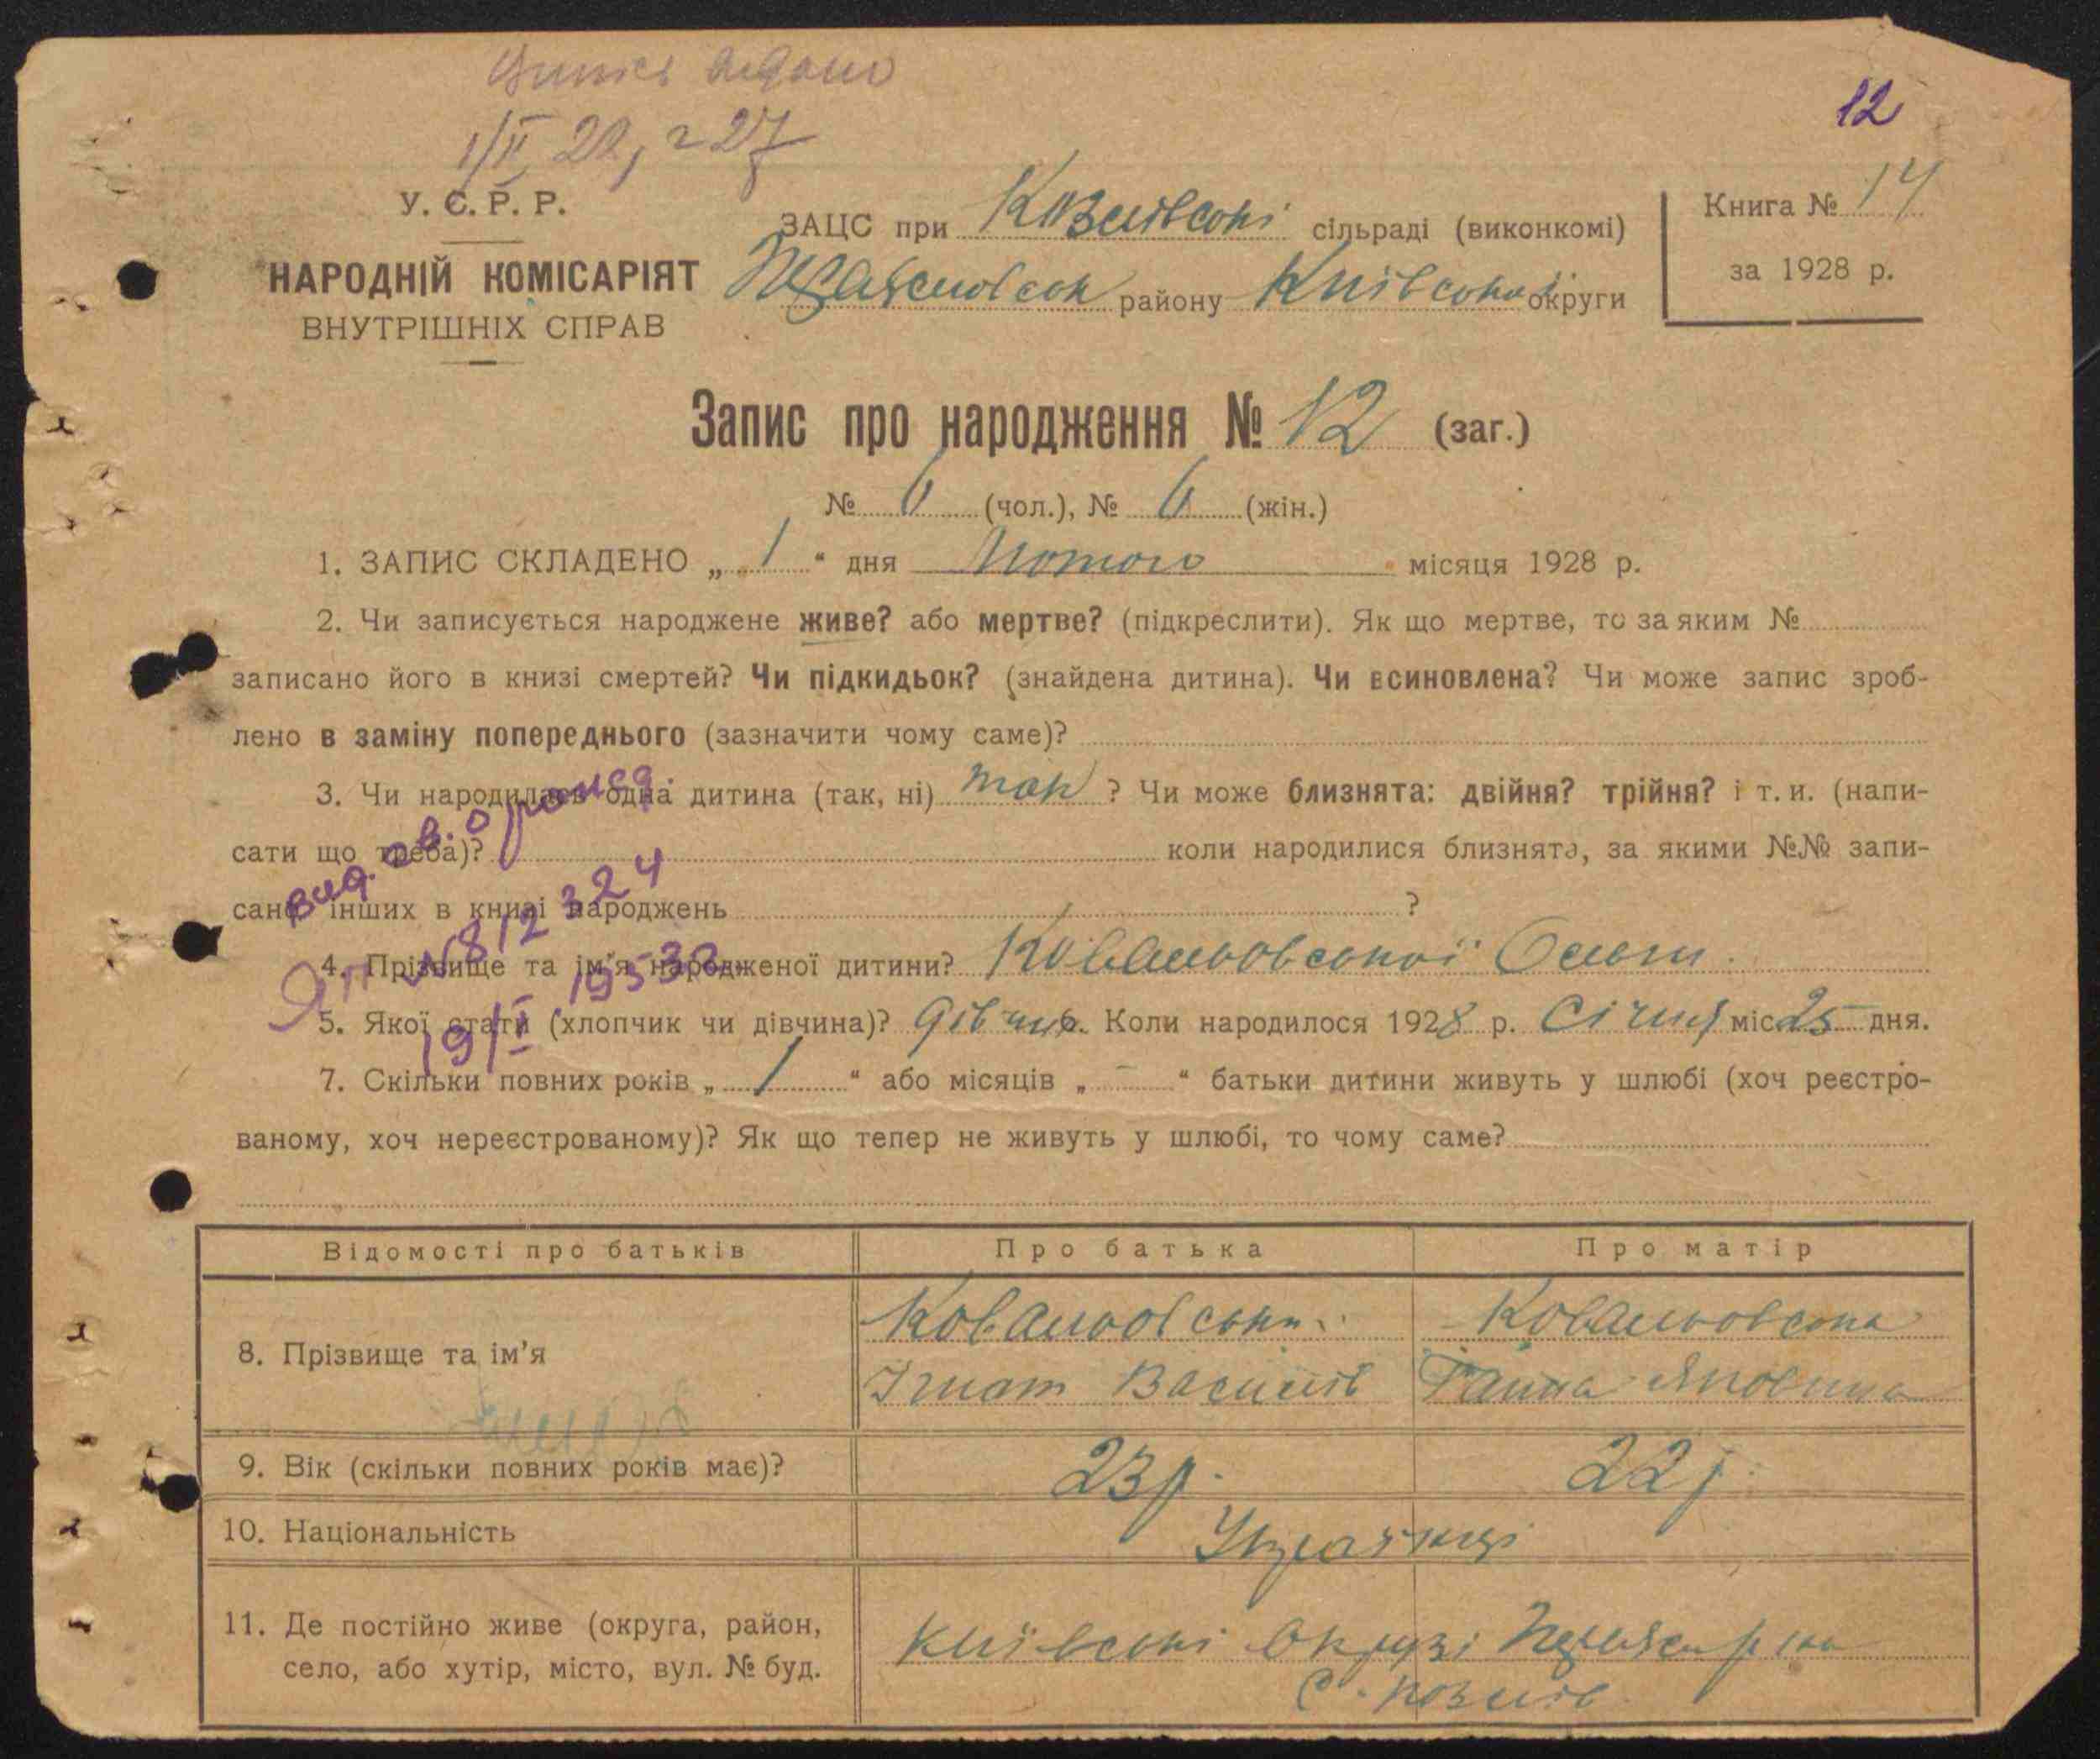 12
У. С. Р. Р.
НАРОДНІЙ КОМІСАРІЯТ
ВНУТРІШНІХ СПРАВ
ЗАЦС при Козлівські сільраді (виконкомі)
району Київської округи
Книга № 14
за 1928 р.
Запис про народження № 12 (заг.)
№ 6 (чол.), № 6 (жін.)
1. ЗАПИС СКЛАДЕНО „ 1 “ дня Лютого місяця 1928 р.
2. Чи записується народжене живе? або мертве? (підкреслити). Як що мертве, то за яким №
записано його в книзі смертей? Чи підкидьок? (знайдена дитина). Чи всиновлена? Чи може запис зроб-
лено в заміну попереднього (зазначити чому саме)?
3. Чи народилась одна дитина (так, ні) так ? Чи може близнята: двійня? трійня? і т. и. (напи-
сати що треба)? коли народилися близнята, за якими №№ запи-
сано інших в книзі народжень ?
вид. св. о рожд.
ЯП № 812324
19/I 1953 г.
4. Прізвище та ім’я народженої дитини? Ковальовської Ольги.
5. Якої статі (хлопчик чи дівчина)? дівчина. Коли народилося 1928 р. Січня міс. 25 дня.
7. Скільки повних років „ 1 “ або місяців „ – “ батьки дитини живуть у шлюбі (хоч реєстро-
ваному, хоч нереєстрованому)? Як що тепер не живуть у шлюбі, то чому саме?
Відомості про батьків Про батька Про матір
8. Прізвище та ім’я
Ковальовськи Ковальовська
Ігнат Василів Ганна Яковина
9. Вік (скільки повних років має)? 23 р. 22 р.
10. Національність Українці
11. Де постійно живе (округа, район,
село, або хутір, місто, вул. № буд.
Київські округі
С. Козлів